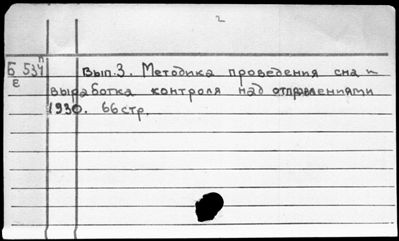 2
Б 537 п Вып.3. Методика проведения сна и
е выработка контроля над отправлениями
1930. 66 стр.